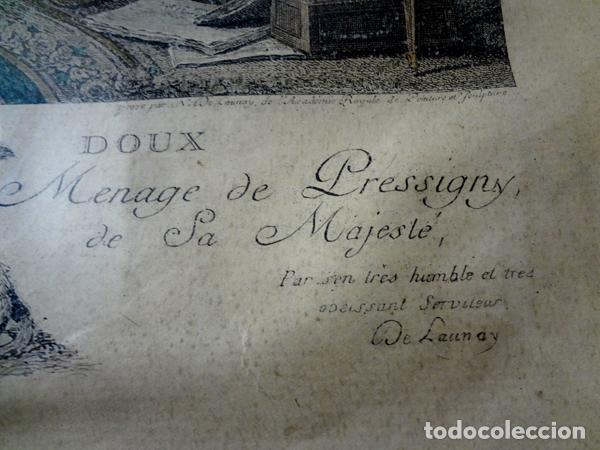 Gravé par N. De Launay, de l'Academie Royale de Peinture et Sculpture
DOUX
Menage de Pressigny,
de Sa Majesté,
Par s'en très humble et très
obeissant Serviteur
De Launay
todocoleccion